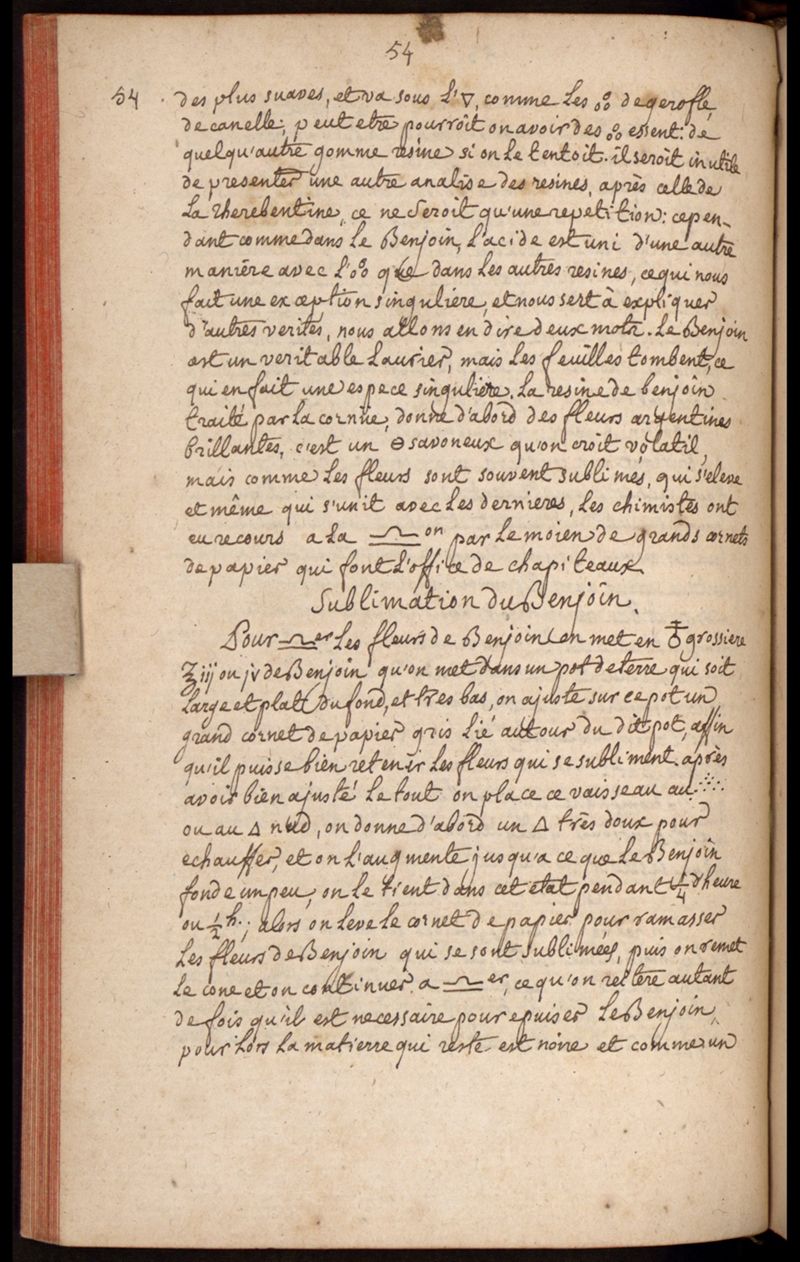 54
54 . des plus suaves, et va sous l'▽, comme les o°o de gerofle
de canelle; peut etre pourroit on avoir des o°o essent: de
quelqu'autre gomme resine si on le tentoit. il seroit inutile
de presenter une autre analise des resines, après celle de
la therebentine, ce ne seroit qu'une repetition: cepen-
dant comme dans le Benjoin, l'acide est uni d'une autre
maniére avec l'o°o que dans les autres resines, ce qui nous
fait une exception singuliere, et nous sert à expliquer
d'autres verités, nous allons en dire deux mots. Le Benjoin
est un veritable Laurier, mais les feuilles tombent, ce
qui en fait une espece singuliere. La resine de benjoin
traité par la cornüe, donne d'abord des fleurs argentines
brillantes, c'est un ⊖ savoneux qu'on croit volatil,
mais comme les fleurs sont souvent sublimés, qui s'eleve
et même qui s'unit avec les dernieres, les chimistes ont
eu recours a la ♎on par le moien de grands cornets
de papier qui font l'office de chapiteaux.
Sublimation du Benjoin.
Pour ♎er les fleurs de Benjoin on met en ♁ grossiere
℥iij ou jv de Benjoin qu'on met dans un pot de terre qui soit
large et plat du fond, et tres bas, on ajuste sur ce pot un
grand cornet de papier gris lié autour du dit pot, affin
qu'il puisse bien retenir les fleurs qui se subliment. après
avoir bien ajusté le tout on place ce vaisseau au ∴∴
ou au △ nud, on donne d'abord un △ très doux pour
echauffer, et on l'augmente jusqu'a ce que le Benjoin
fonde un peu; on le tient dans cet etat pendant ¼ d'heure
ou ½ h.; alors on leve le cornet de papier pour ramasser
les fleurs de Benjoin qui se sont sublimées, puis on remet
le cone et on continuer a ♎er, ce qu'on reïtere autant
de fois qu'il est necessaire pour epuiser le Benjoin,
pour lors la matierre qui reste est noire et comme un